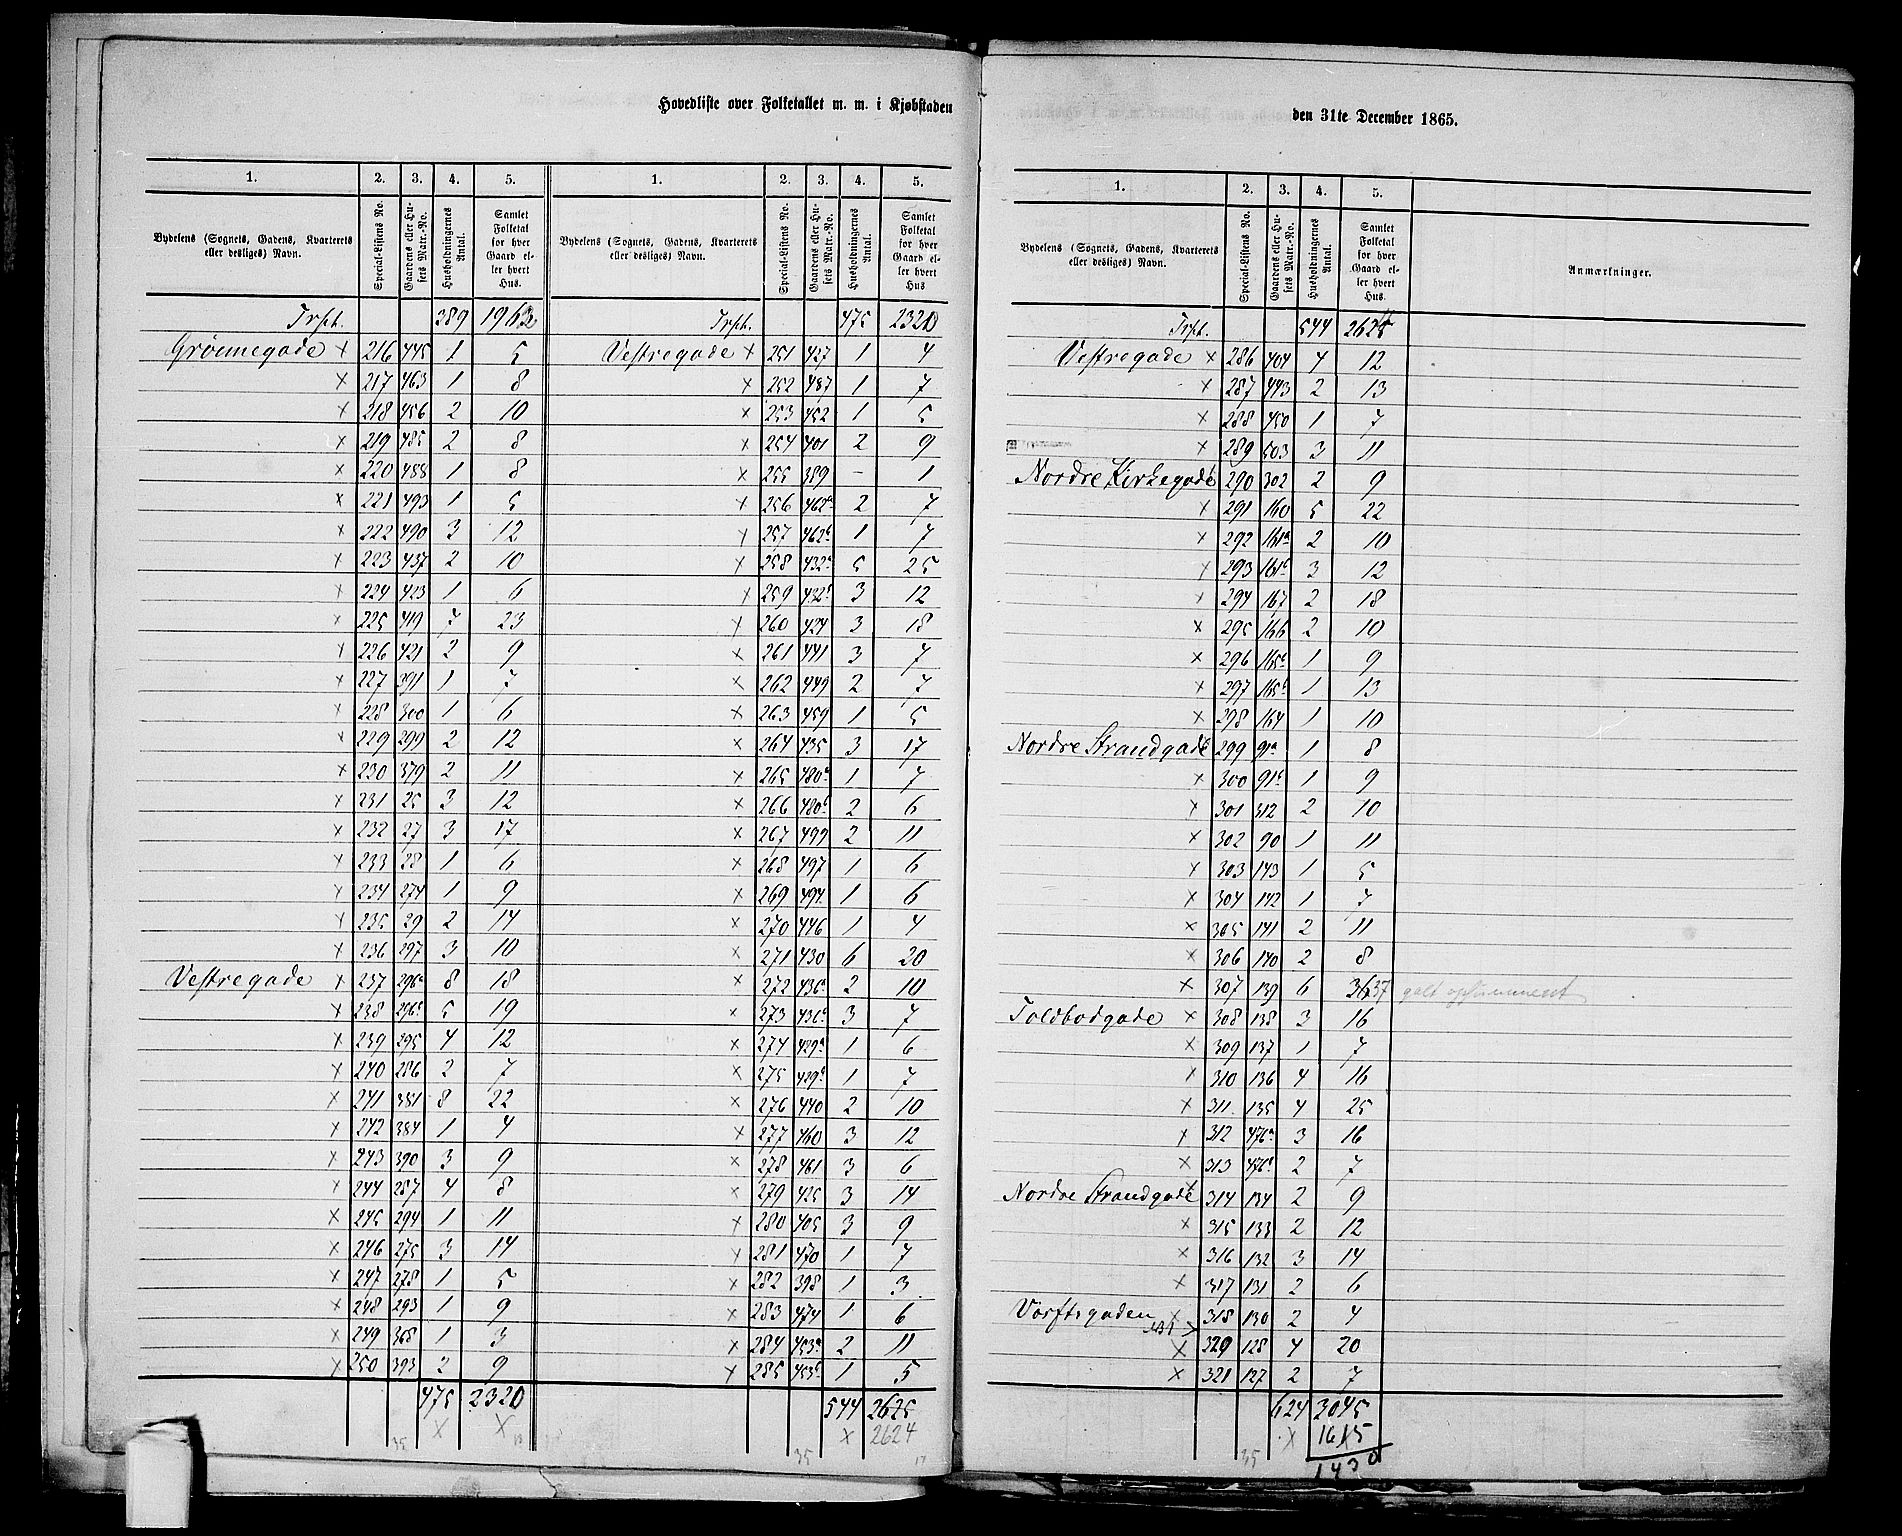 Hovedliste over Folketallet m. m. i Kjøbstaden
den 31te December 1865.
1. 2. 3. 4. 5.
Bydelens (Sognets, Gadens, Kvarterets eller desliges) Navn. Special-Listens No. Gaardens eller Husets Matr.-No. Husholdningernes Antal. Samlet Folketal for hver Gaard eller hvert Hus.
Trspt. 389 1963
Grønnegade × 216 445 1 5
× 217 463 1 8
× 218 456 2 10
× 219 485 2 8
× 220 488 1 8
× 221 493 1 5
× 222 490 3 12
× 223 437 2 10
× 224 423 1 6
× 225 419 7 23
× 226 421 2 9
× 227 391 1 7
× 228 300 1 6
× 229 299 2 12
× 230 379 2 11
× 231 25 3 12
× 232 27 3 17
× 233 28 1 6
× 234 274 1 9
× 235 29 2 14
× 236 297 3 10
Vestregade × 237 296a 8 18
× 238 296b 5 19
× 239 295 4 12
× 240 286 2 7
× 241 381 8 22
× 242 384 1 4
× 243 390 3 9
× 244 287 4 8
× 245 294 1 11
× 246 275 3 14
× 247 278 1 5
× 248 293 1 9
× 249 368 1 3
× 250 393 2 9
475 2320
35 × ×
1. 2. 3. 4. 5.
Bydelens (Sognets, Gadens, Kvarterets eller desliges) Navn. Special-Listens No. Gaardens eller Husets Matr.-No. Husholdningernes Antal. Samlet Folketal for hver Gaard eller hvert Hus
Trspt. 475 2320
Vestregade × 251 427 1 4
× 252 487 1 7
× 253 452 1 5
× 254 401 2 9
× 255 389 - 1
× 256 462a 2 7
× 257 462b 1 7
× 258 432a 5 25
× 259 432b 3 12
× 260 424 3 18
× 261 441 3 7
× 262 449 2 7
× 263 459 1 5
× 264 435 3 17
× 265 480a 1 7
× 266 480b 2 6
× 267 499 2 11
× 268 497 1 6
× 269 494 1 6
× 270 446 1 4
× 271 430 6 20
× 272 436a 2 10
× 273 436b 3 7
× 274 429a 1 6
× 275 429b 1 7
× 276 440 2 10
× 277 460 3 12
× 278 461 3 6
× 279 425 3 14
× 280 405 3 9
× 281 470 1 7
× 282 398 1 3
× 283 474 1 6
× 284 453a 2 11
× 285 453b 1 5
544 2625
× 2624
35
1. 2. 3. 4. 5.
Bydelens (Sognets, Gadens, Kvarterets eller desliges) Navn. Special-Listens No. Gaardens eller Husets Matr.-No. Husholdningernes Antal. Samlet Folketal for hver Gaard eller hvert Hus. Anmærkninger.
Trspt. 544 2625
Vestregade × 286 404 4 12
× 287 443 2 13
× 288 450 1 7
× 289 503 3 11
Nordre Kirkegade 290 302 2 9
× 291 160 5 22
× 292 161a 2 10
× 293 161b 3 12
× 294 167 2 18
× 295 166 2 10
× 296 165b 1 9
× 297 165b 1 13
× 298 164 1 10
Nordre Strandgade 299 91a 1 8
× 300 91b 1 9
× 301 312 2 10
× 302 90 1 11
× 303 143 1 5
× 304 142 1 7
× 305 141 2 11
× 306 140 2 8
× 307 139 6 36 37
Toldbodgade × 308 138 3 16
× 309 137 1 7
× 310 136 4 16
× 311 135 4 25
× 312 476a 3 16
× 313 476b 2 7
Nordre Strandgade 314 134 2 9
× 315 133 2 12
× 316 132 3 14
× 317 131 2 6
Værftsgaden × 318 130 2 4
× 329 128 4 20
× 321 127 2 7
624 3045
35 × 1615
1430